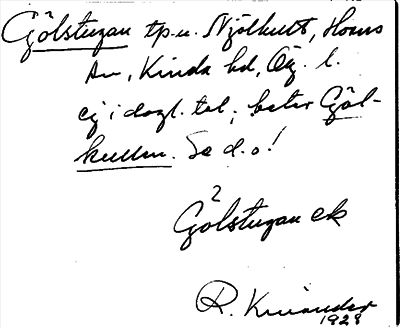 Gölstugan tp. u. Mjölhult, Horns
sn, Kinda hd, Ög. l.
ej i dagl. tal; heter Göl-
kullen. Se d. o!
2
Gölstugan ek
R. Kinander
1928